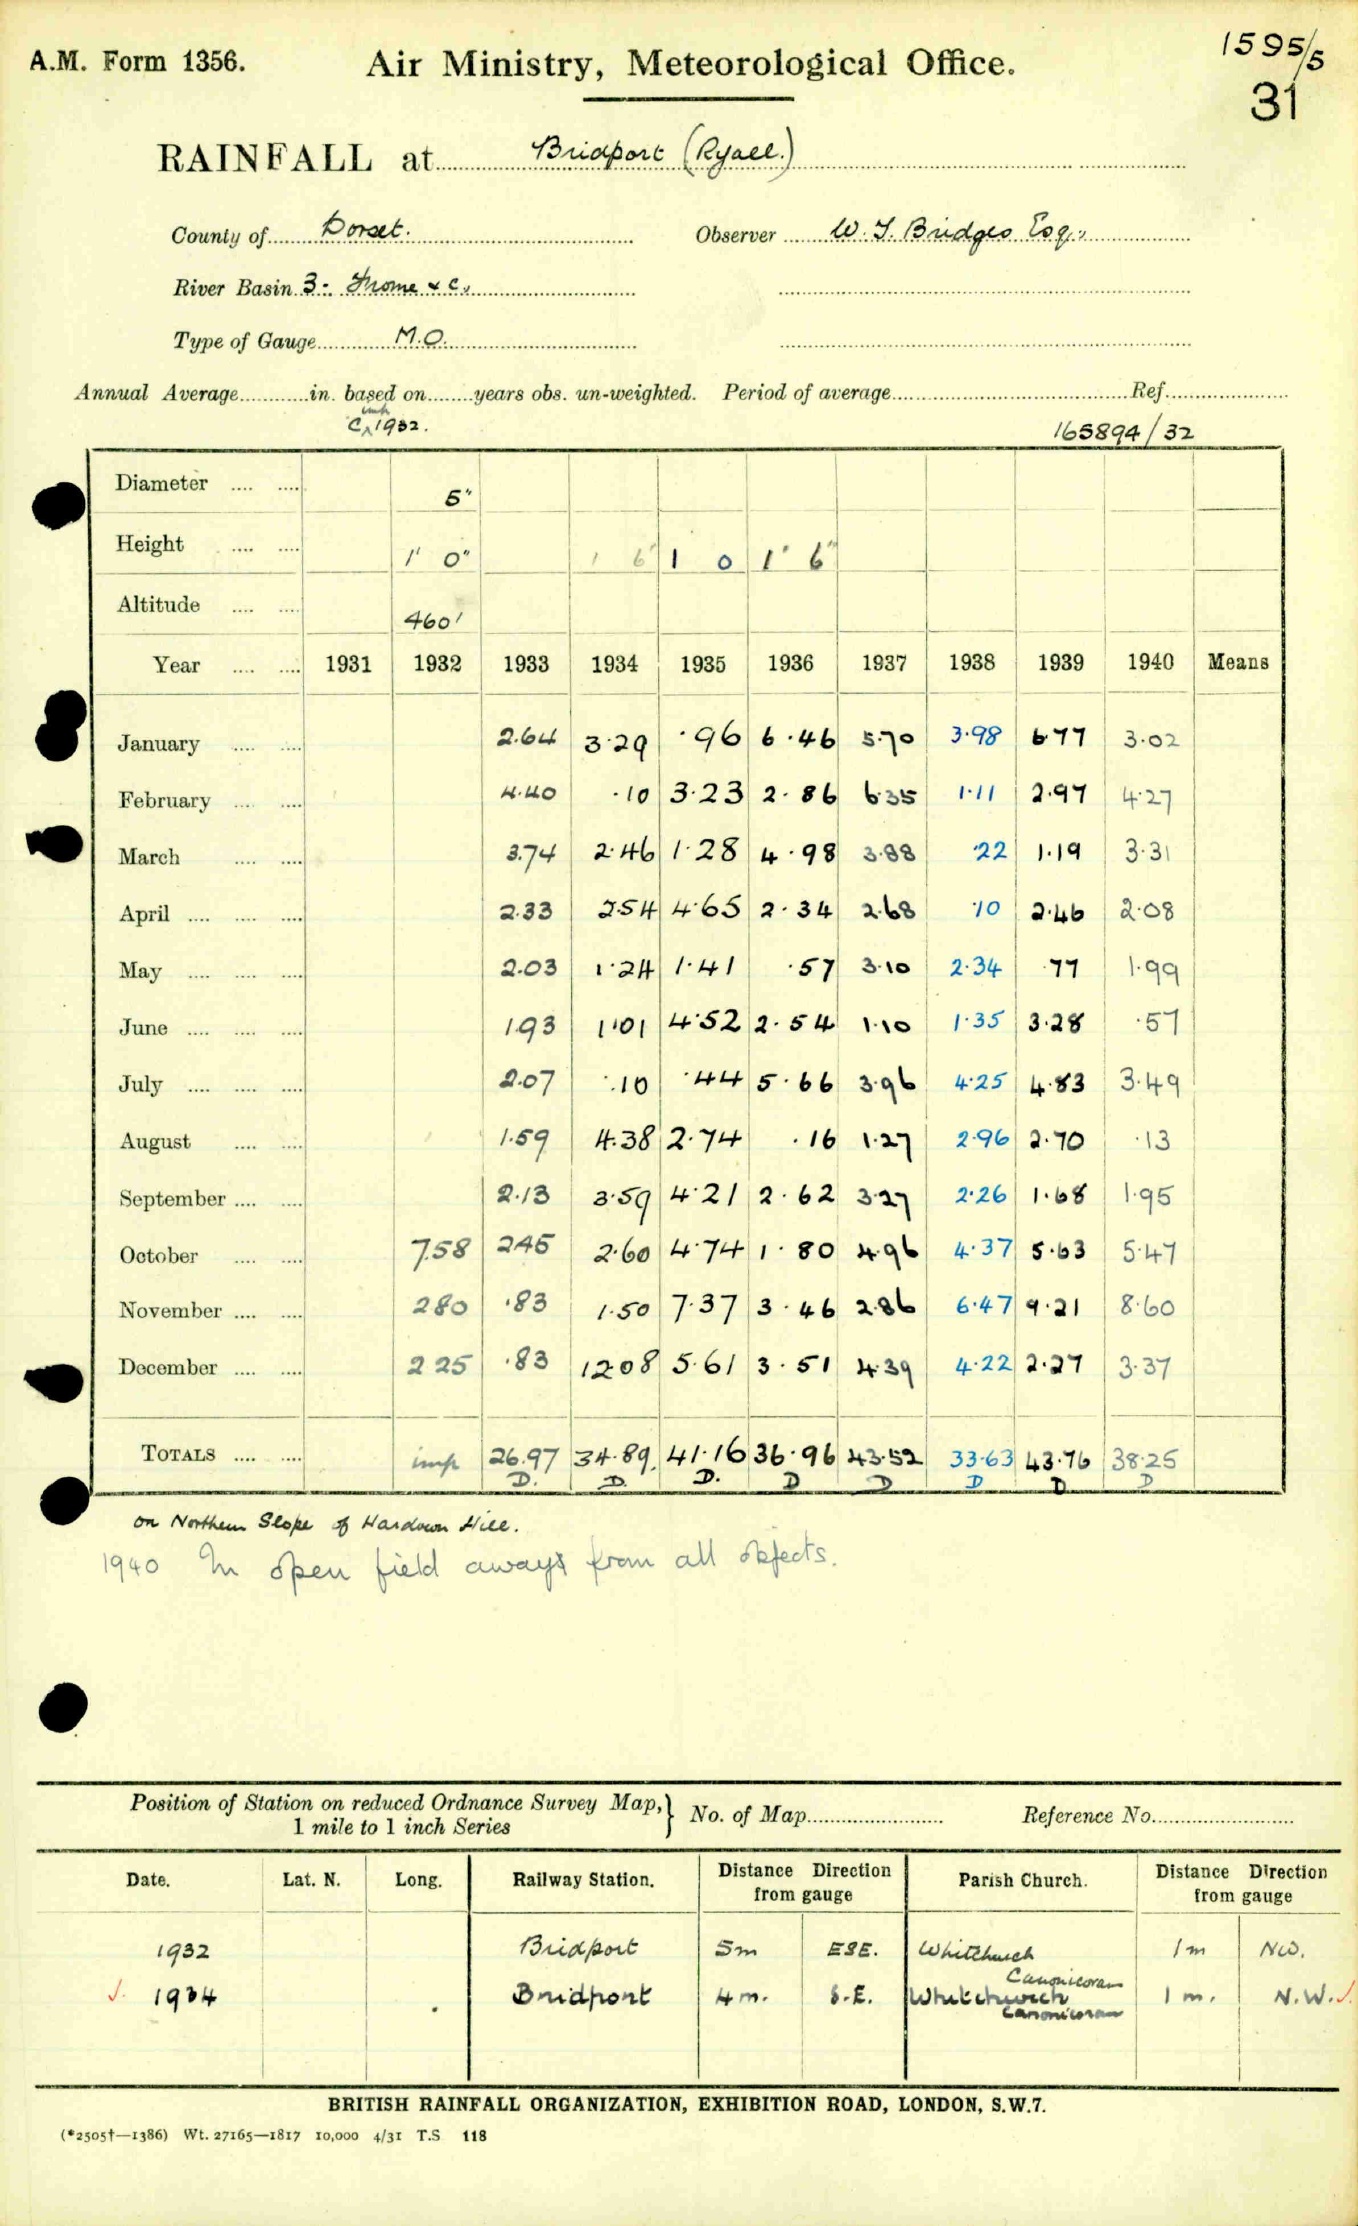 A.M. Form 1356. Air Ministry, Meteorological Office. 1595/5
31
RAINFALL at Bridport (Ryall.)
County of Dorset. Observer W. J. Bridges Esq.,
River Basin 3:- Frome & c.,
Type of Gauge M.O.
Annual Average in. based on years obs. un-weighted. Period of average Ref.
C imp 1932. 165894/32
Diameter 5"
Height 1' 0" 1 6" 1 0 1' 6"
Altitude 460'
Year 1931 1932 1933 1934 1935 1936 1937 1938 1939 1940 Means
January 2.64 3.29 .96 6.46 5.70 3.98 6.77 3.02
February 4.40 .10 3.23 2.86 6.35 1.11 2.97 4.27
March 3.74 2.46 1.28 4.98 3.88 .22 1.19 3.31
April 2.33 2.54 4.65 2.34 2.68 .10 2.46 2.08
May 2.03 1.24 1.41 .57 3.10 2.34 .77 1.99
June 1.93 1.01 4.52 2.54 1.10 1.35 3.28 .57
July 2.07 .10 .44 5.66 3.96 4.25 4.83 3.49
August 1.59 4.38 2.74 .16 1.27 2.96 2.70 .13
September 2.13 3.59 4.21 2.62 3.27 2.26 1.68 1.95
October 7.58 2.45 2.60 4.74 1.80 4.96 4.37 5.63 5.47
November 2.80 .83 1.50 7.37 3.46 2.86 6.47 9.21 8.60
December 2 25 .83 12.08 5.61 3.51 4.39 4.22 2.27 3.37
TOTALS imp 26.97 34.89. 41.16 36.96 43.52 33.63 43.76 38.25
D. D. D. D D D D D
on Northern Slope of Hardown Hill.
1940 In open field aways from all objects.
Position of Station on reduced Ordnance Survey Map, 1 mile to 1 inch Series } No. of Map Reference No.
Date. Lat. N. Long. Railway Station. Distance Direction from gauge Parish Church. Distance Direction from gauge
1932 Bridport 5m ESE. Whitchurch Canonicorum 1m NW.
1934 Bridport 4m. S.E. Whitchurch Canonicorum 1m. N.W.
BRITISH RAINFALL ORGANIZATION, EXHIBITION ROAD, LONDON, S.W.7.
(*2505†—1386) Wt. 27165—1817 10,000 4/31 T.S 118